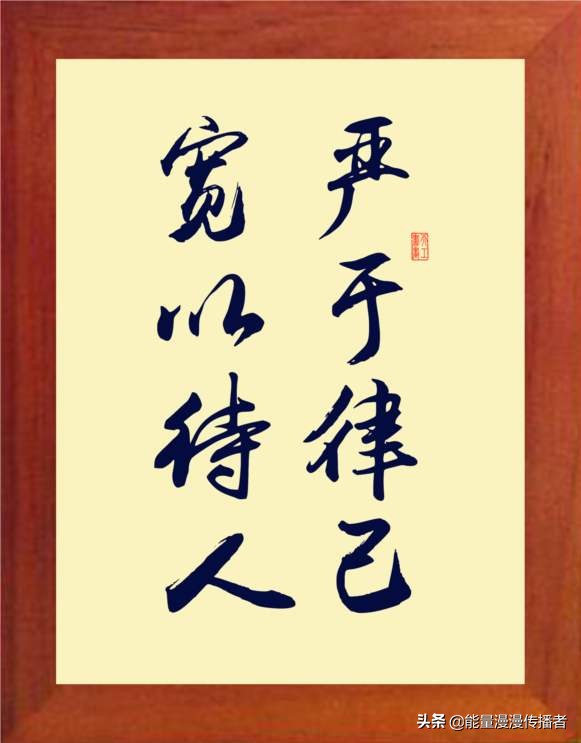 严于律己
宽以待人
头条 @能量漫漫传播者